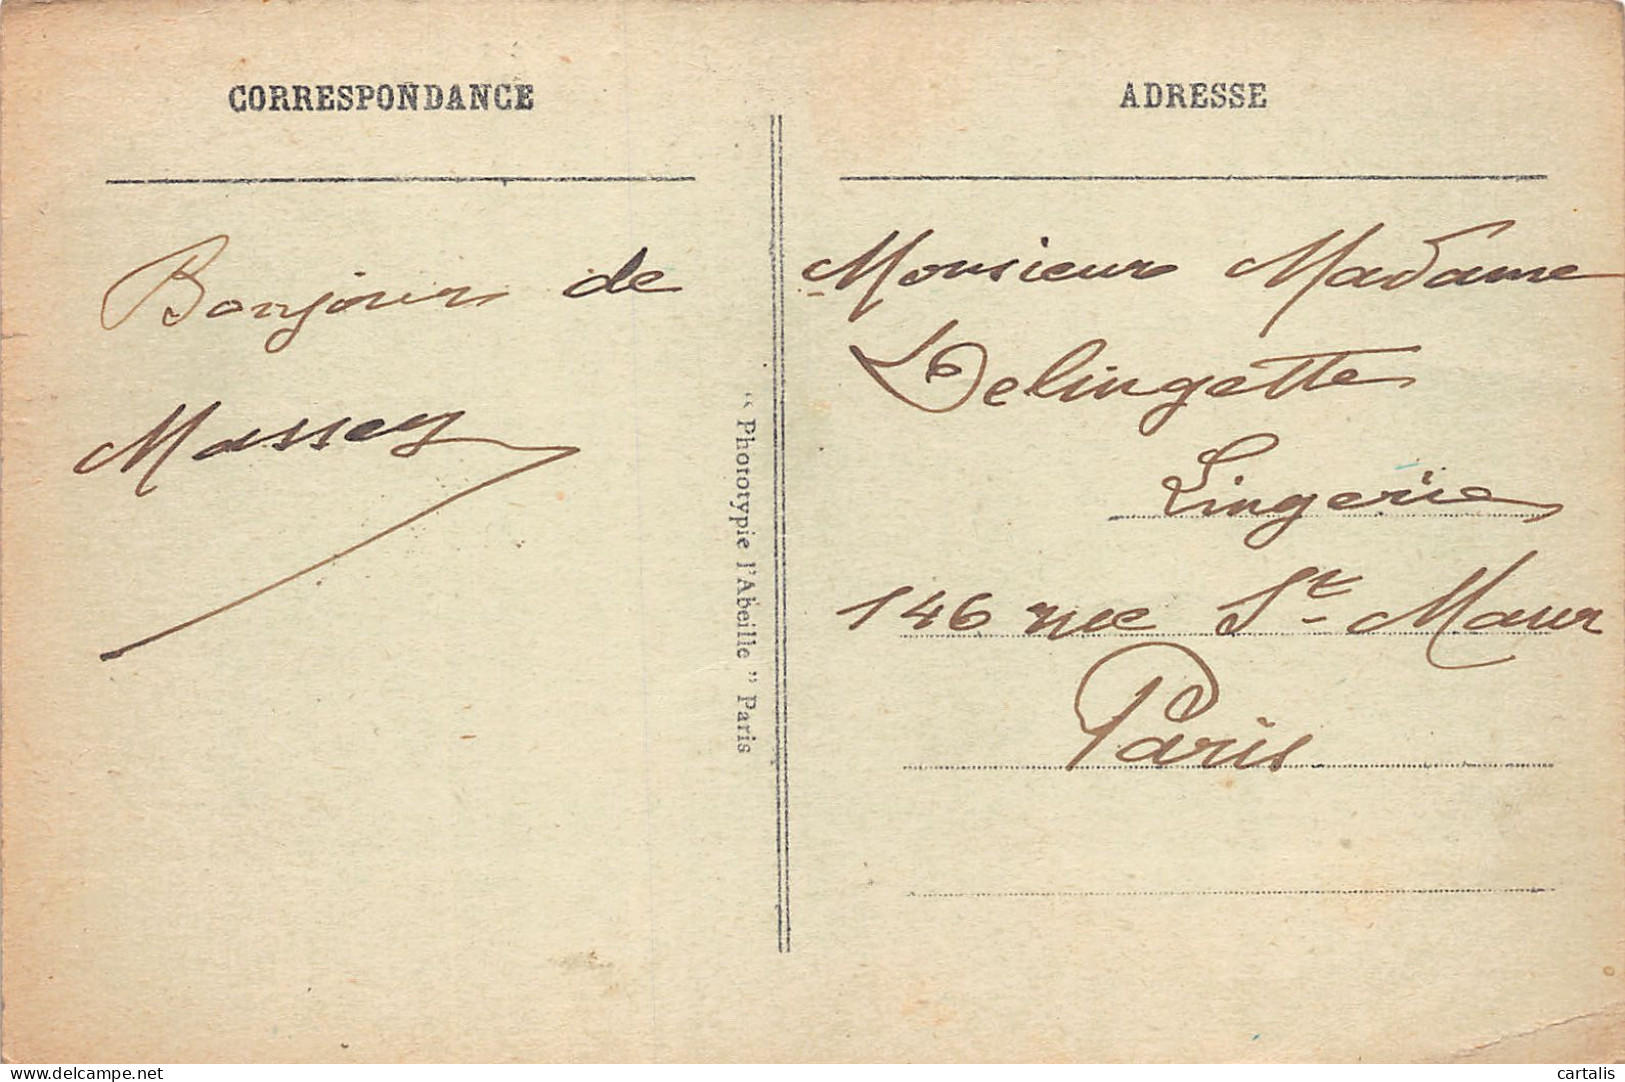 CORRESPONDANCE
Bonjour de
Massey
" Phototypie l'Abeille " Paris
ADRESSE
Monsieur Madame
Delingette
Lingerie
146 rue St- Maur
Paris
delcampe.net
cartalis